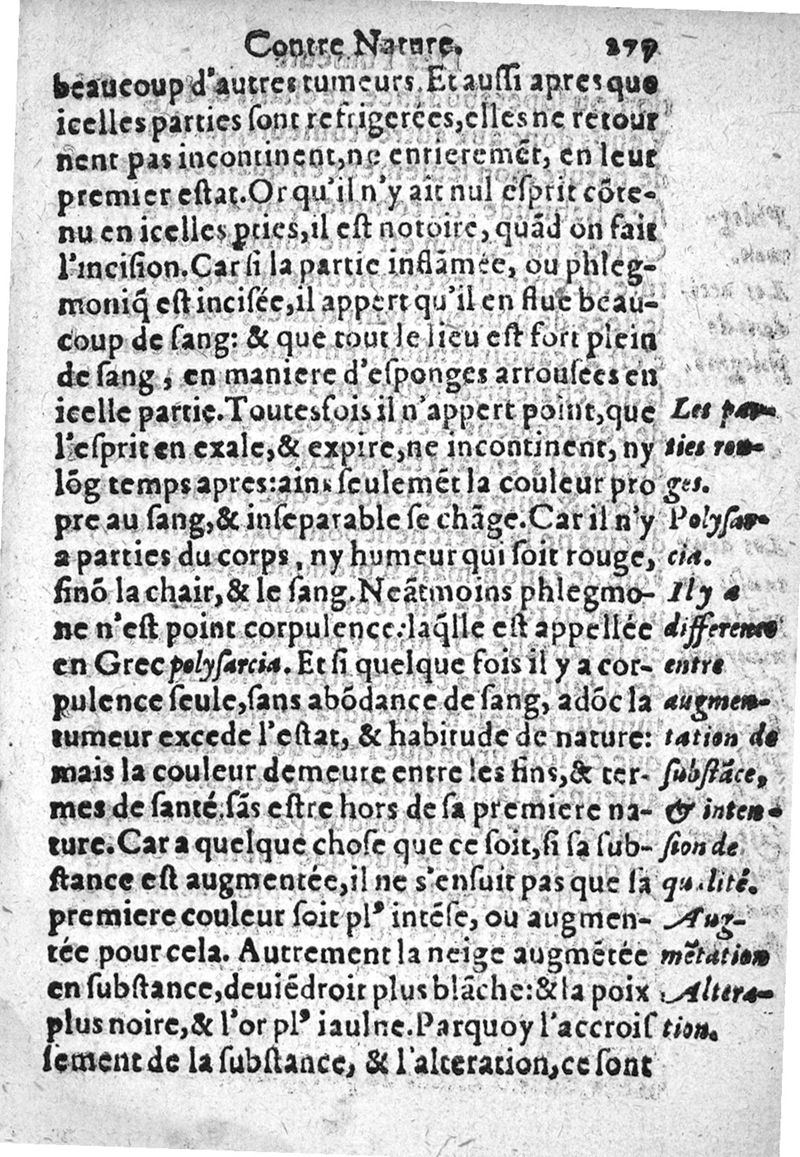 Contre Nature. 277
beaucoup d'autres tumeurs. Et auſſi apres que
icelles parties ſont refrigerées, elles ne retour
nent pas incontinent, ne entieremẽt, en leur
premier eſtat. Or qu'il n'y ait nul eſprit cõte-
nu en icelles ꝑties, il eſt notoire, quãd on fait
l'inciſion. Car ſi la partie inflãmée, ou phleg-
moniq̃ eſt inciſée, il appert qu'il en flue beau-
coup de ſang: & que tout le lieu eſt fort plein
de ſang, en maniere d'eſponges arrouſées en
icelle partie. Toutesfois il n'appert point, que
l'eſprit en exale, & expire, ne incontinent, ny
lõg temps apres: ains ſeulemẽt la couleur pro
pre au ſang, & inſeparable ſe chãge. Car il n'y
a parties du corps, ny humeur qui ſoit rouge,
ſinõ la chair, & le ſang. Neãtmoins phlegmo-
ne n'eſt point corpulence: laq̃lle eſt appellée
en Grec polyſarcia. Et ſi quelque fois il y a cor-
pulence ſeule, ſans abõdance de ſang, adõc la
tumeur excede l'eſtat, & habitude de nature:
mais la couleur demeure entre les fins, & ter-
mes de ſanté, ſãs eſtre hors de ſa premiere na-
ture. Car a quelque choſe que ce ſoit, ſi ſa ſub-
ſtance eſt augmentée, il ne s'enſuit pas que ſa
premiere couleur ſoit plꝰ intẽſe, ou augmen-
tée pour cela. Autrement la neige augmẽtée
en ſubſtance, deuiẽdroit plus blãche: & la poix
plus noire, & l'or plꝰ iaulne. Parquoy l'accroiſ
ſement de la ſubſtance, & l'alteration, ce ſont
Les par-
ties rou-
ges.
Polyſar-
cia.
Il y a
difference
entre
augmen-
tation de
ſubſtãce,
& inten-
ſion de
qualité.
Aug-
mẽtation
Altera-
tion.